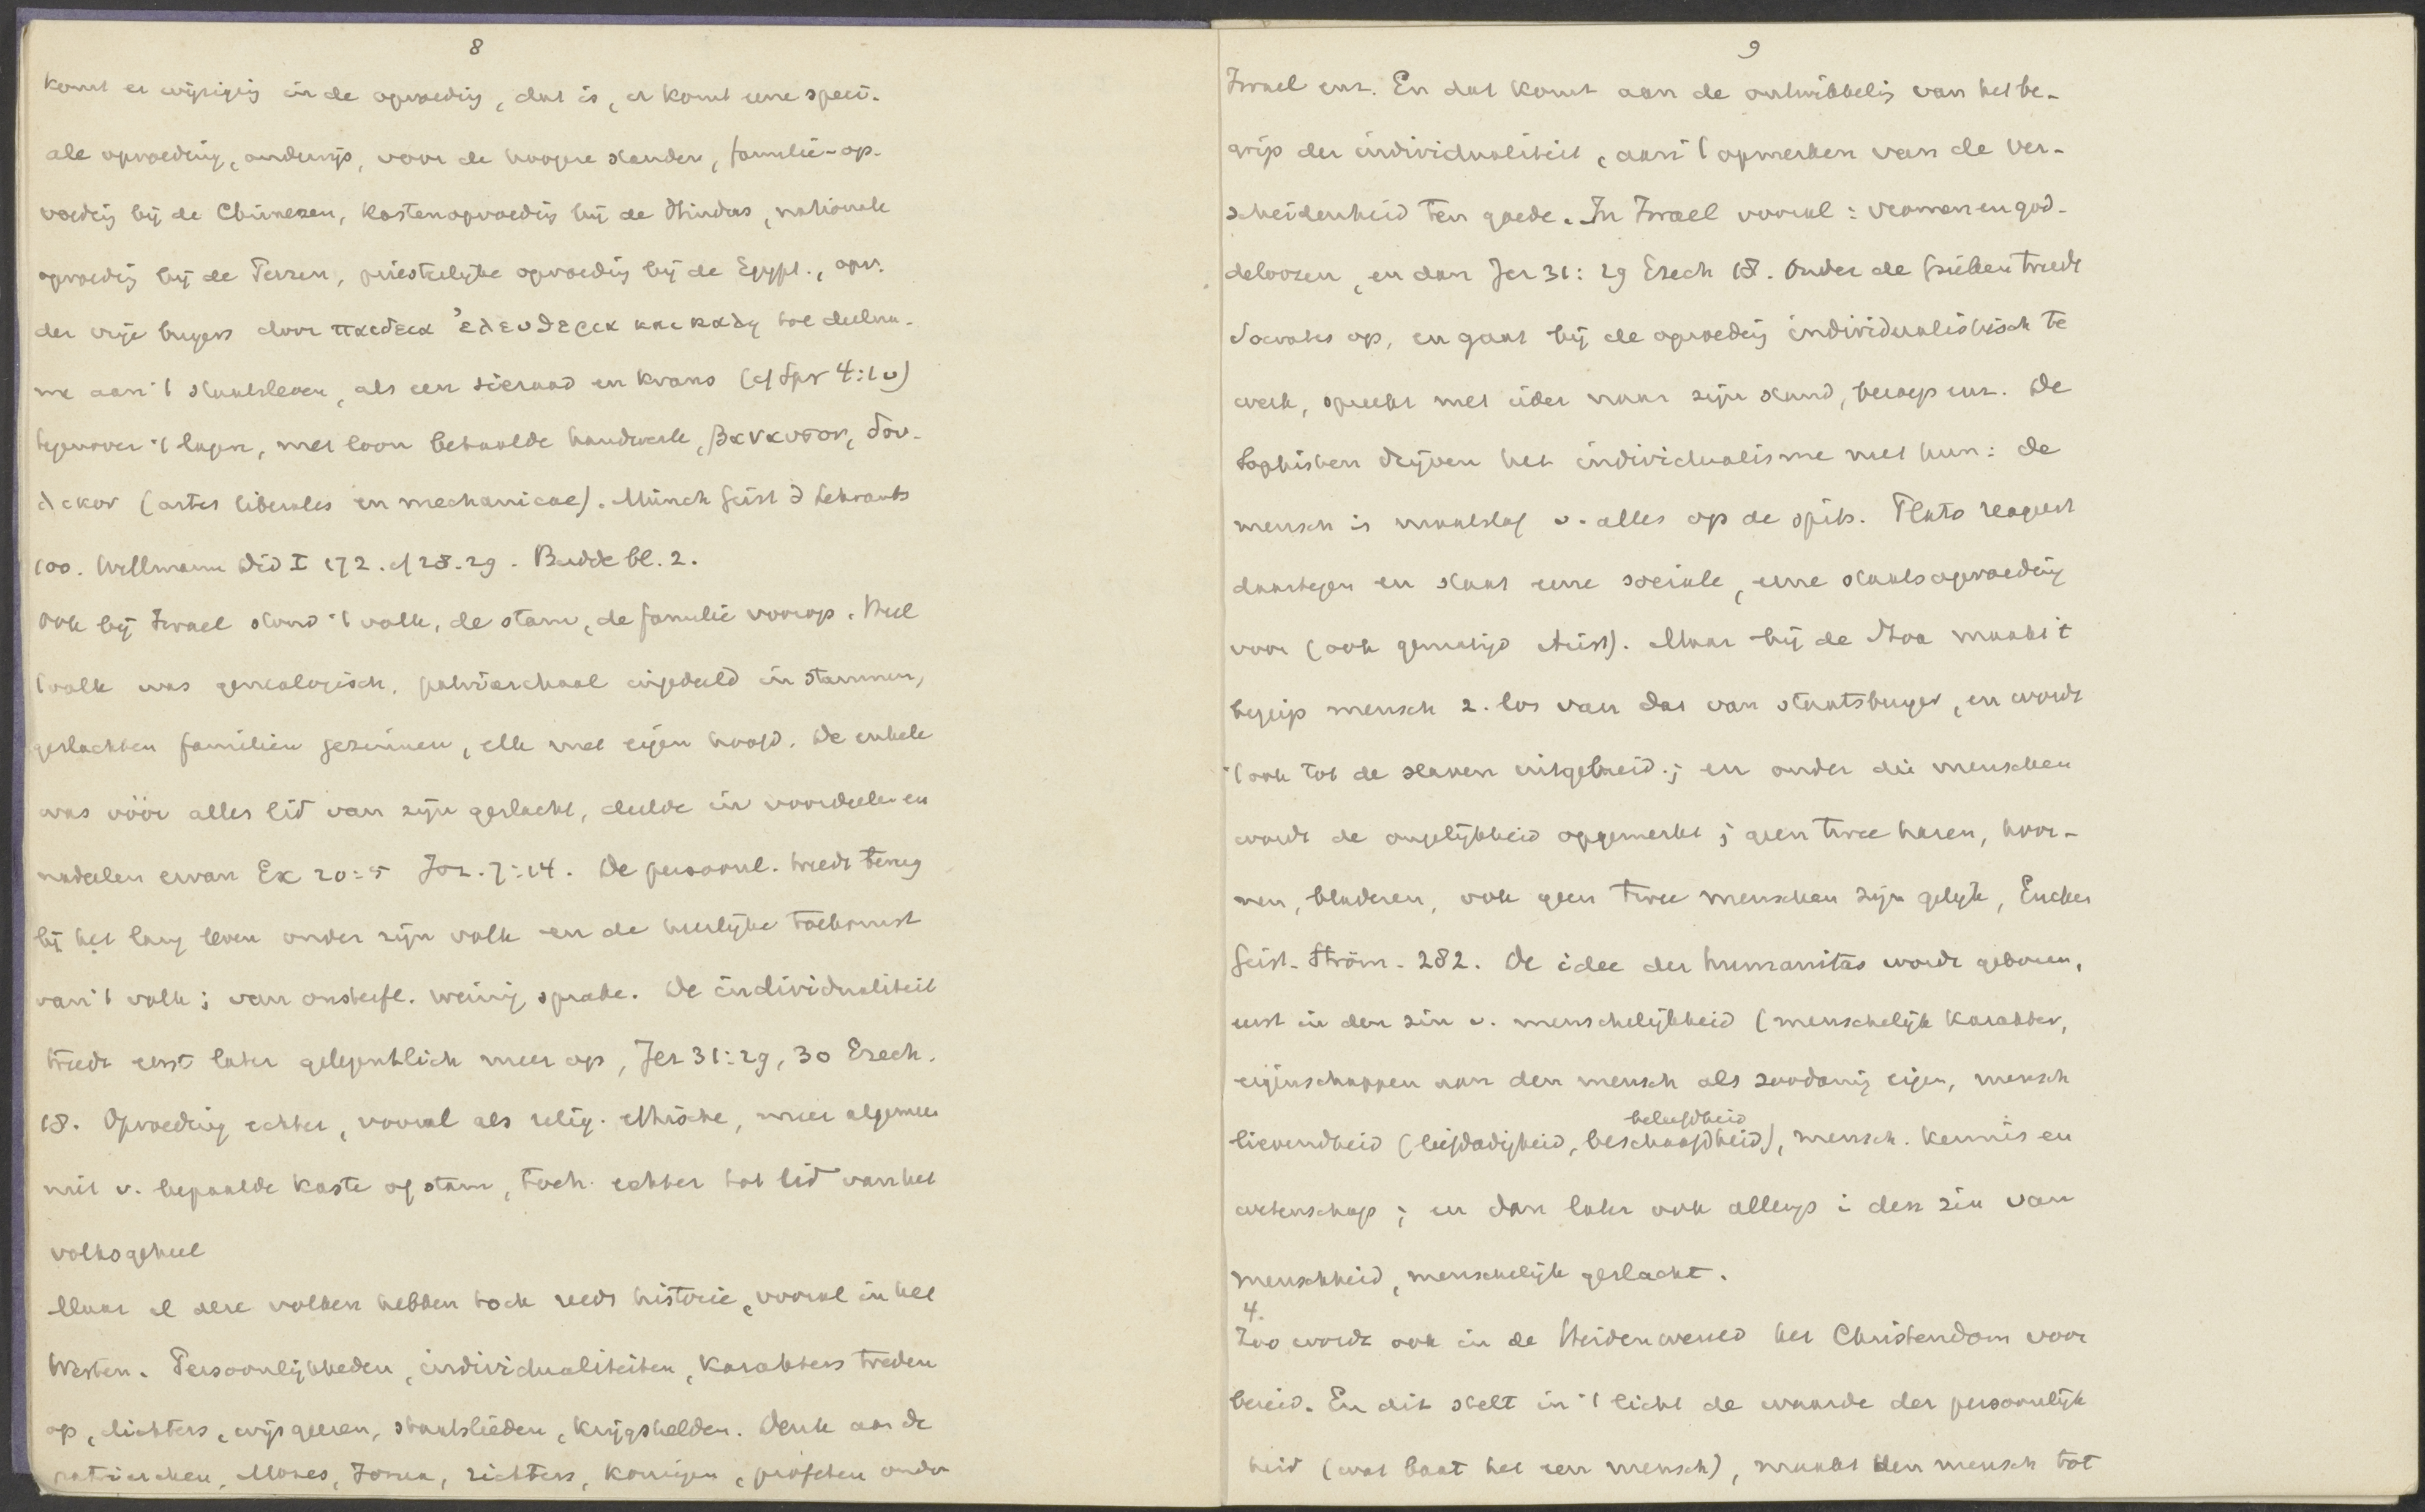 8
komt er wijziging in de opvoeding, dat is, er komt eene speci-
ale opvoeding, onderwijs, voor de hoogere standen, familie-op-
voeding bij de Chineezen, kastenopvoeding bij de Hindus, nationale
opvoeding bij de Perzen, priesterlijke opvoeding bij de Egypt., opv.
der vrije burgers door παιδεια ἐλευθερια και καλη tot deelna-
me aan 't staatsleven, als een sieraad en krans (cf Spr 4:10)
tegenover 't lagere, met loon betaalde handwerk, βαναυσον, δου-
λικον (artes liberales en mechanicae). Münch Geist d Lehramts
100. Willmann Did I 172. cf 28.29. Budde bl. 2.
Ook bij Israel stond 't volk, de stam, de familie voorop. Heel
't volk was genealogisch, patriarchaal ingedeeld in stammen,
geslachten familiën gezinnen, elk met eigen hoofd. De enkele
was vóór alles lid van zijn geslacht, deelde in voordeelen en
nadeelen ervan Ex 20:5 Joz. 7:14. De persoonl. treedt terug
bij het lang leven onder zijn volk en de heerlijke toekomst
van 't volk; van onsterfl. weinig sprake. De individualiteit
treedt eerst later gelegentlich meer op, Jer 31:29, 30 Ezech.
18. Opvoeding echter, vooral als relig. ethische, meer algemeen
niet v. bepaalde kaste of stam, toch echter tot lid van het
volksgeheel
Maar al deze volken hebben toch reeds historie, vooral in het
Westen. Persoonlijkheden, individualiteiten, karakters treden
op, dichters, wijsgeeren, staatslieden, krijgshelden. Denk aan de
patriarchen, Mozes, Jozua, richters, koningen, profeten onder
9
Israel enz. En dat komt aan de ontwikkeling van het be-
grip der individualiteit, aan 't opmerken van de ver-
scheidenheid ten goede. In Israel vooral: vromen en god-
deloozen, en dan Jer 31:29 Ezech 18. Onder de Grieken treedt
Socrates op, en gaat bij de opvoeding individualistisch te
werk, spreekt met ieder naar zijn stand, beroep enz. De
Sophisten drijven het individualisme met hun: de
mensch is maatstaf v. alles op de spits. Plato reageert
daartegen en staat eene sociale, eene staatsopvoeding
voor (ook gematigd Arist). Maar bij de Stoa maakt 't
begrip mensch z. los van dat van staatsburger, en wordt
't ook tot de slaven uitgebreid; en onder die menschen
wordt de ongelijkheid opgemerkt; geen twee haren, koor-
nen, bladeren, ook geen twee menschen zijn gelijk, Eucken
Geist. Ström. 282. De idee der humanitas wordt geboren,
eerst in den zin v. menschelijkheid (menschelijk karakter,
eigenschappen aan den mensch als zoodanig eigen, mensch
beleefdheid
lievendheid (liefdadigheid, beschaafdheid), mensch. kennis en
wetenschap; en dan later ook allengs i den zin van
menschheid, menschelijk geslacht.
4.
Zoo wordt ook in de Heidenwereld het Christendom voor
bereid. En dit stelt in 't licht de waarde der persoonlijk
heid (wat baat het een mensch), maakt den mensch tot